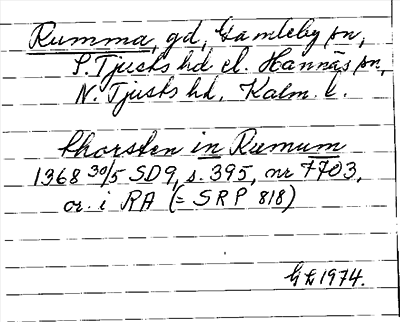 Rumma, gd, Gamleby sn,
S. Tjusts hd el. Hannäs sn,
N. Tjusts hd, Kalm. l.
thorsten in Rumum
1368 30/5 SD9, s. 395, nr 7703,
or. i RA (= SRP 818)
GL 1974.